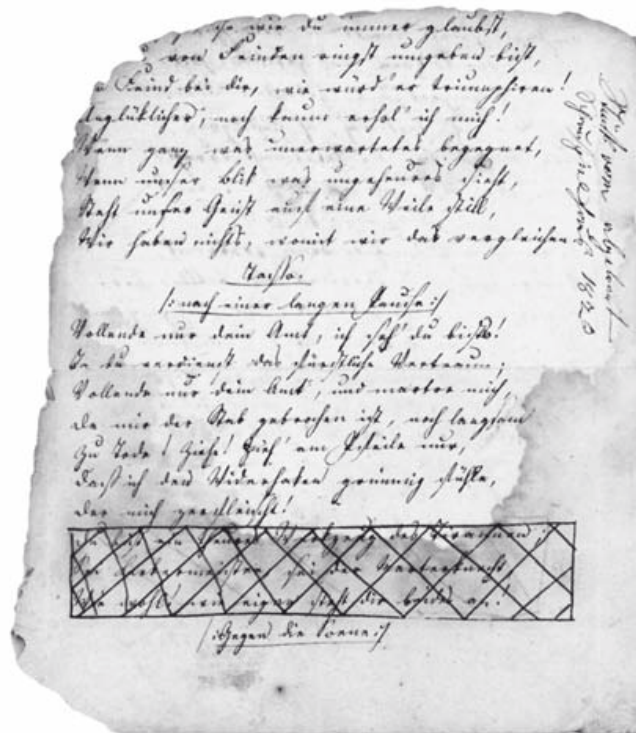 wie du immer glaubst,
von Feinden ringst umgeben bist,
Feind bei dir, wie würd' er triumphiren!
Unglüklicher, noch kaum erhol' ich mich!
Wenn ganz was unerwartetes begegnet,
Wenn unser Blik was ungeheures sieht,
Steht unser Geist auf eine Weile still,
Wir haben nichts, womit wir das vergleichen.
Tasso.
/: nach einer langen Pause :/
Vollende nur dein Amt, ich seh' du bists!
Ja du verdienst das fürstliche Vertraun;
Vollende nur dein Amt, und martre mich,
Da mir der Stab gebrochen ist, noch langsam
Zu Tode! Ziehe! Zieh' am Pfeile nur,
Dass ich den Widerhaken grimmig fühle,
Der mich zerfleischt!
Du bist ein theures Werkzeug des Tirannen;
Sei Kerkermeister, sei der Marterknecht,
Wie wohl! wie eigen steht dir beides an!
/: Gegen die Scene :/
1820